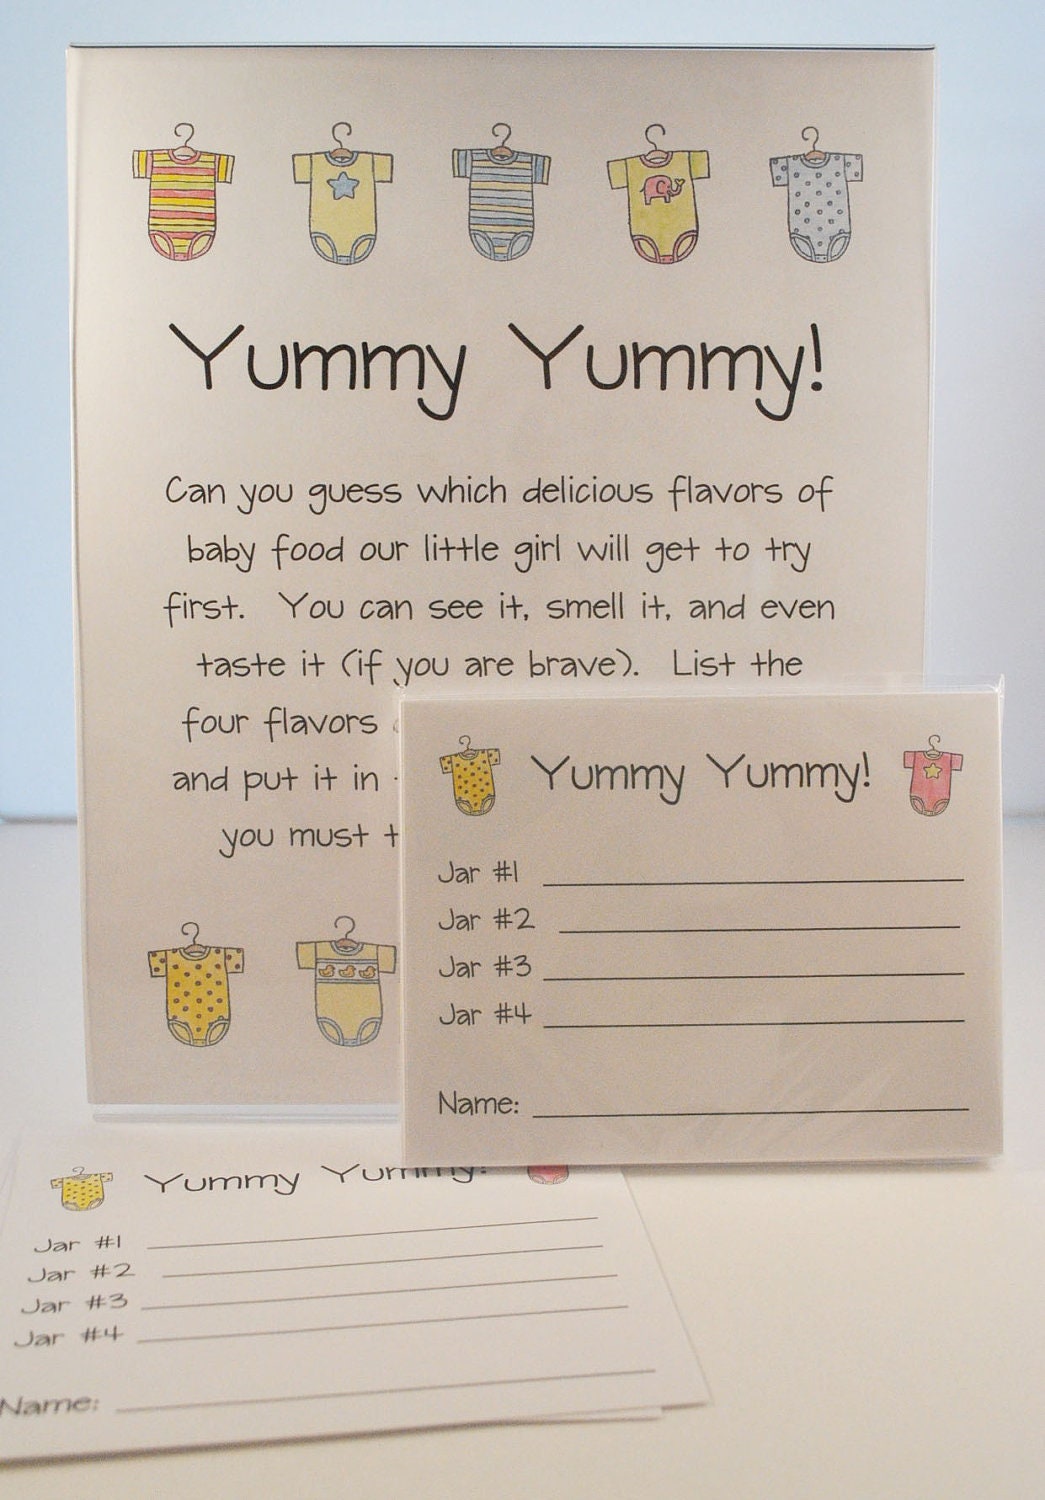 Yummy Yummy!
Can you guess which delicious flavors of
baby food our little girl will get to try
first.  You can see it, smell it, and even
taste it (if you are brave).  List the
four flavors
and put it in
you must
Yummy Yummy!
Jar #1
Jar #2
Jar #3
Jar #4
Name:
Yummy Yummy!
Jar #1
Jar #2
Jar #3
Jar #4
Name: